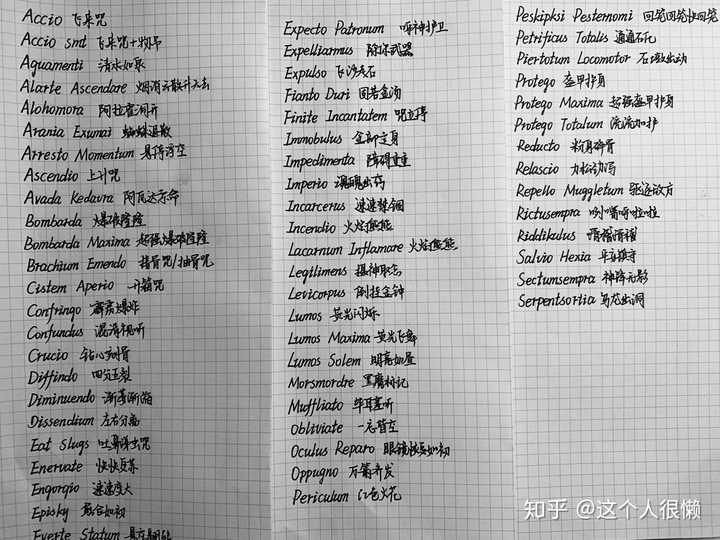 Accio 飞来咒
Accio smt 飞来咒+物品
Aguamenti 清水如泉
Alarte Ascendare 烟消云散升天去
Alohomora 阿拉霍洞开
Arania Exumai 蜘蛛退散
Arresto Momentum 悬停浮空
Ascendio 上升咒
Avada Kedavra 阿瓦达索命
Bombarda 爆破隆隆
Bombarda Maxima 超强爆破隆隆
Brachium Emendo 接骨咒/抽骨咒
Cistem Aperio 开箱咒
Confringo 霹雳爆炸
Confundus 混淆视听
Crucio 钻心剜骨
Diffindo 四分五裂
Diminuendo 渐渐渐缩
Dissendium 左右分离
Eat Slugs 吐鼻涕虫咒
Enervate 快快复苏
Engorgio 速速变大
Episky 愈合如初
Everte Statum
Expecto Patronum 呼神护卫
Expelliarmus 除你武器
Expulso 飞沙走石
Fianto Duri 固若金汤
Finite Incantatem 咒立停
Immobulus 全部定身
Impedimenta 障碍重重
Imperio 魂魄出窍
Incarcerus 速速禁锢
Incendio 火焰熊熊
Lacarnum Inflamare 火焰熊熊
Legilimens 摄神取念
Levicorpus 倒挂金钟
Lumos 荧光闪烁
Lumos Maxima 荧光飞舞
Lumos Solem 明亮如昼
Morsmordre 黑魔标记
Muffliato 闭耳塞听
Obliviate 一忘皆空
Oculus Reparo 眼镜恢复如初
Oppugno 万箭齐发
Periculum 红色火花
Peskipksi Pesternomi 回笼回笼快回笼
Petrificus Totalis 通通石化
Piertotum Locomotor 石墩出动
Protego 盔甲护身
Protego Maxima 超强盔甲护身
Protego Totalum 统统加护
Reducto 粉身碎骨
Relascio 力松劲泻
Repello Muggletum 驱逐敌方
Rictusempra 咧嘴呼啦啦
Riddikulus 滑稽滑稽
Salvio Hexia 平安镇守
Sectumsempra 神锋无影
Serpentsortia 乌龙出洞
知乎 @这个人很懒